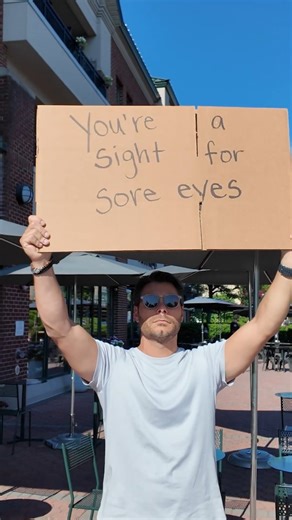 You're a
sight for
sore eyes